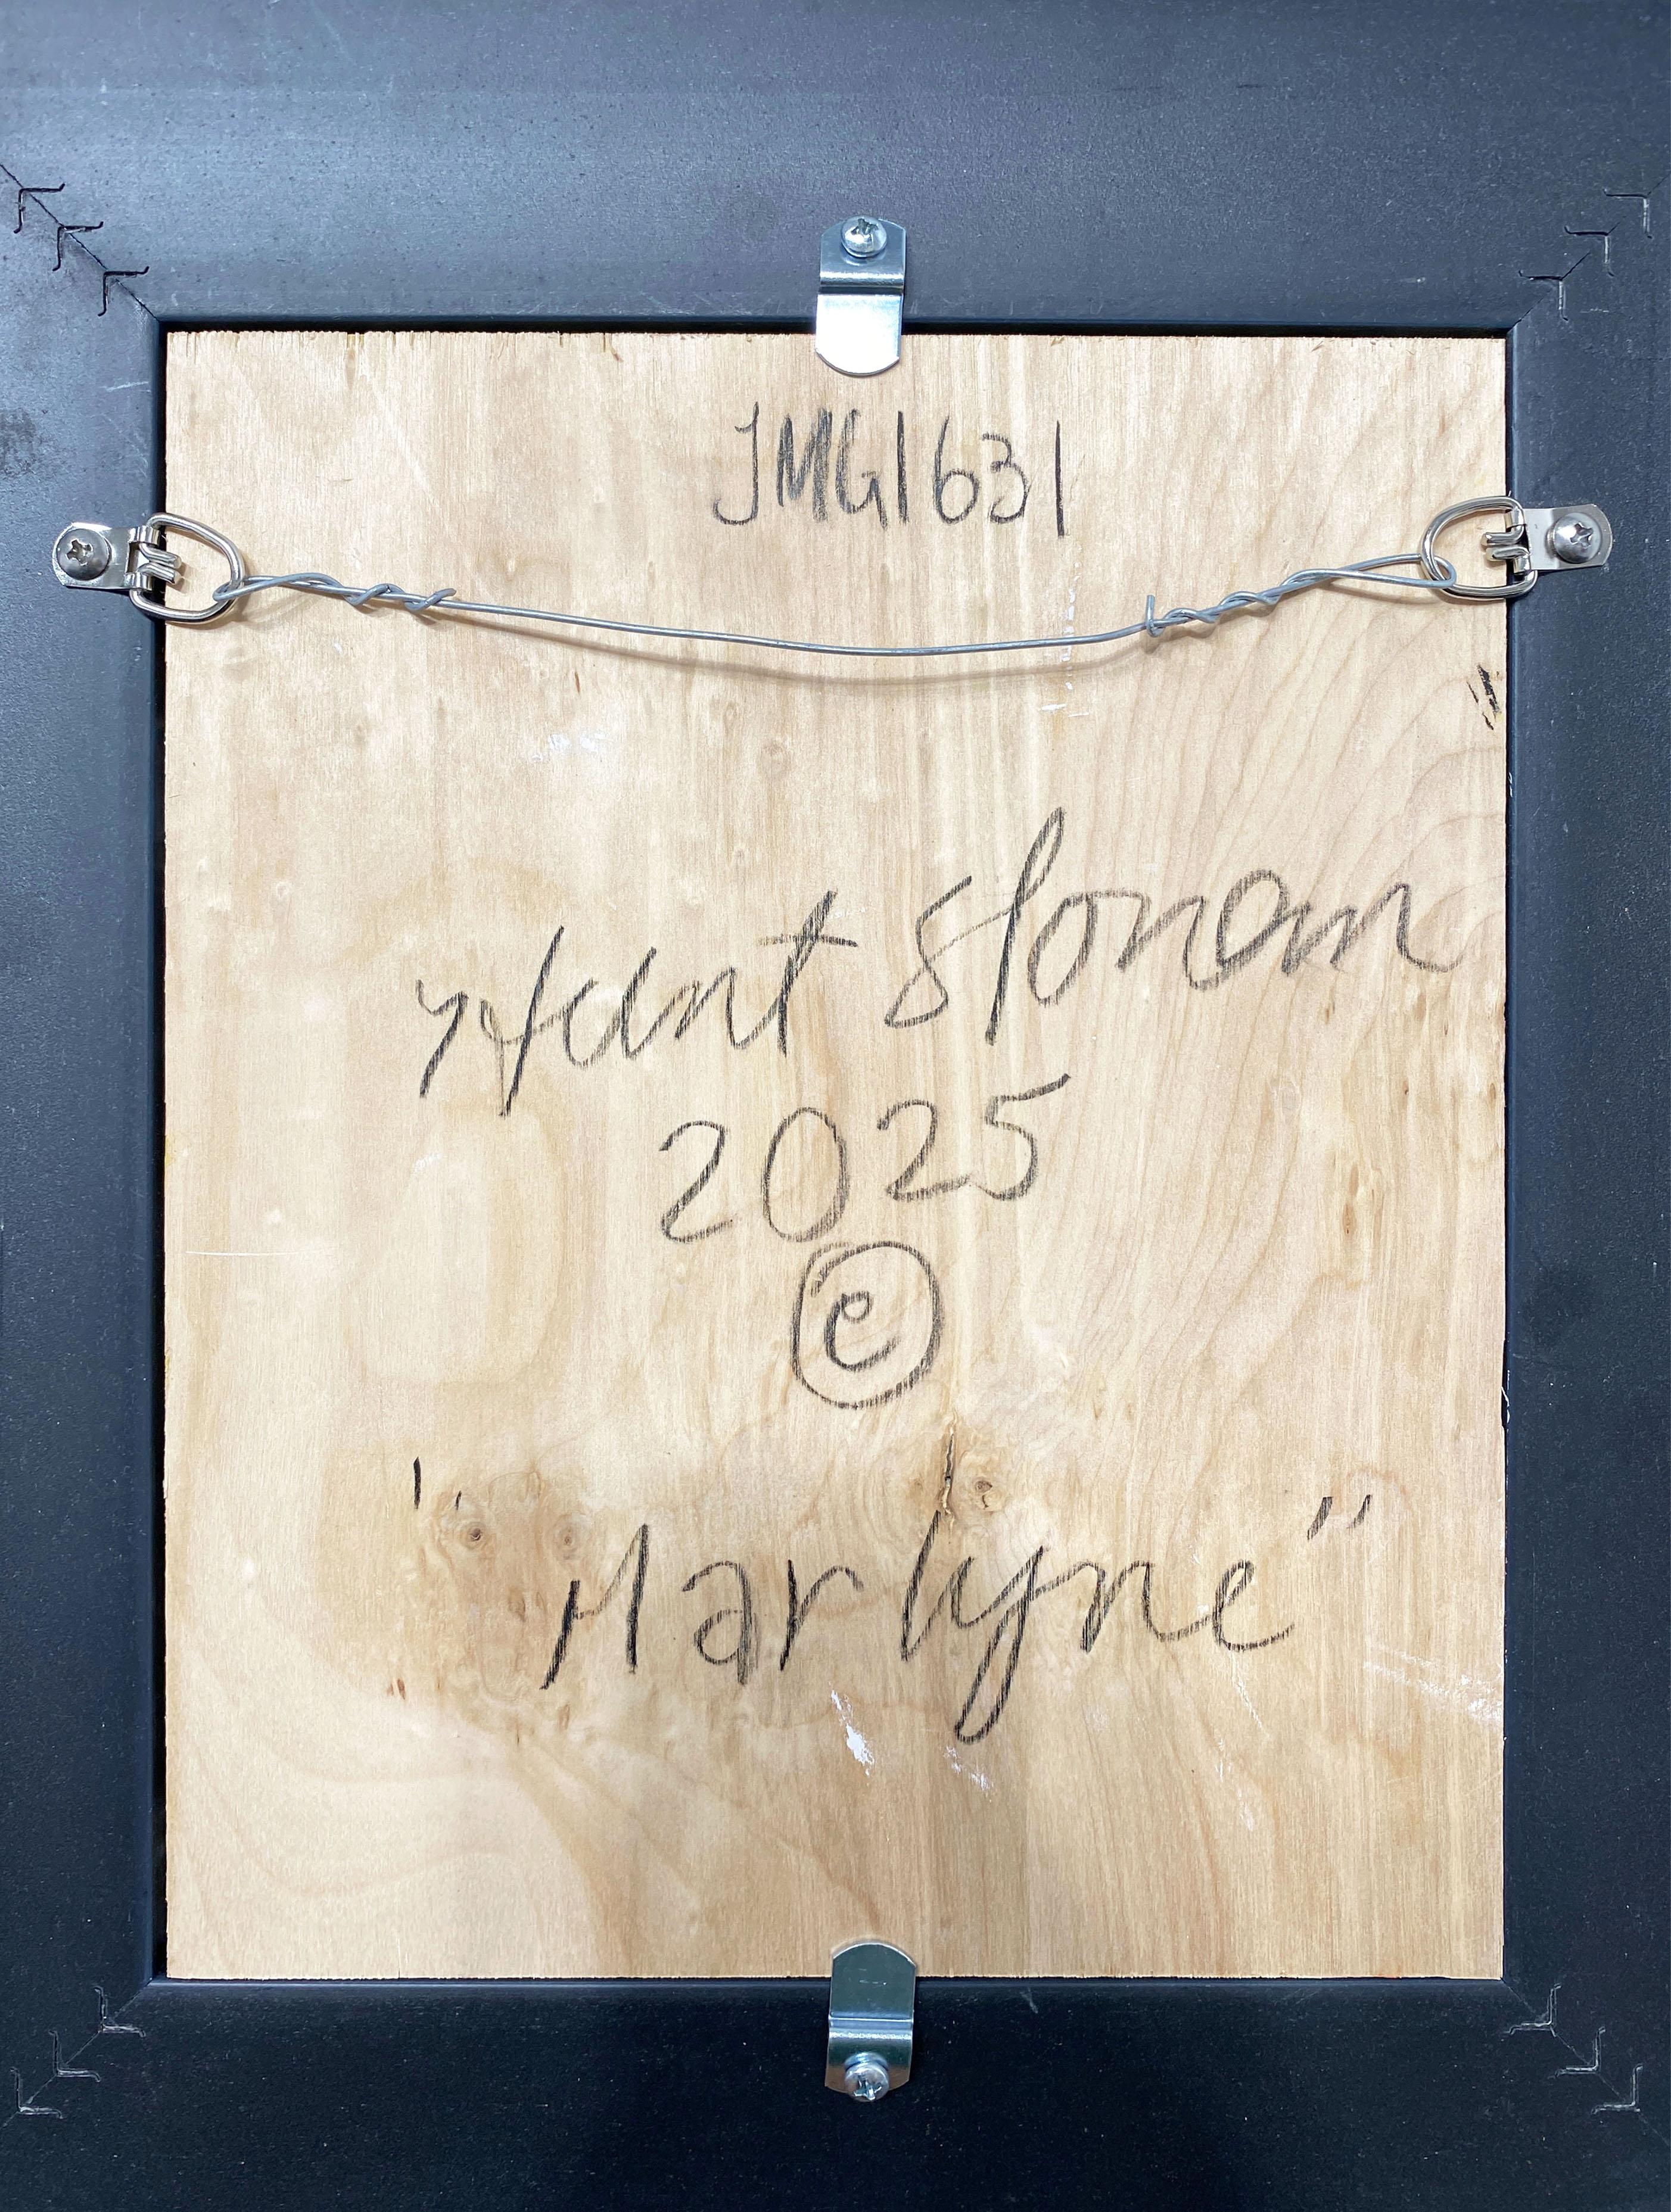 JMG1631
Hunt Slonem
2025
©
"Marlyne"